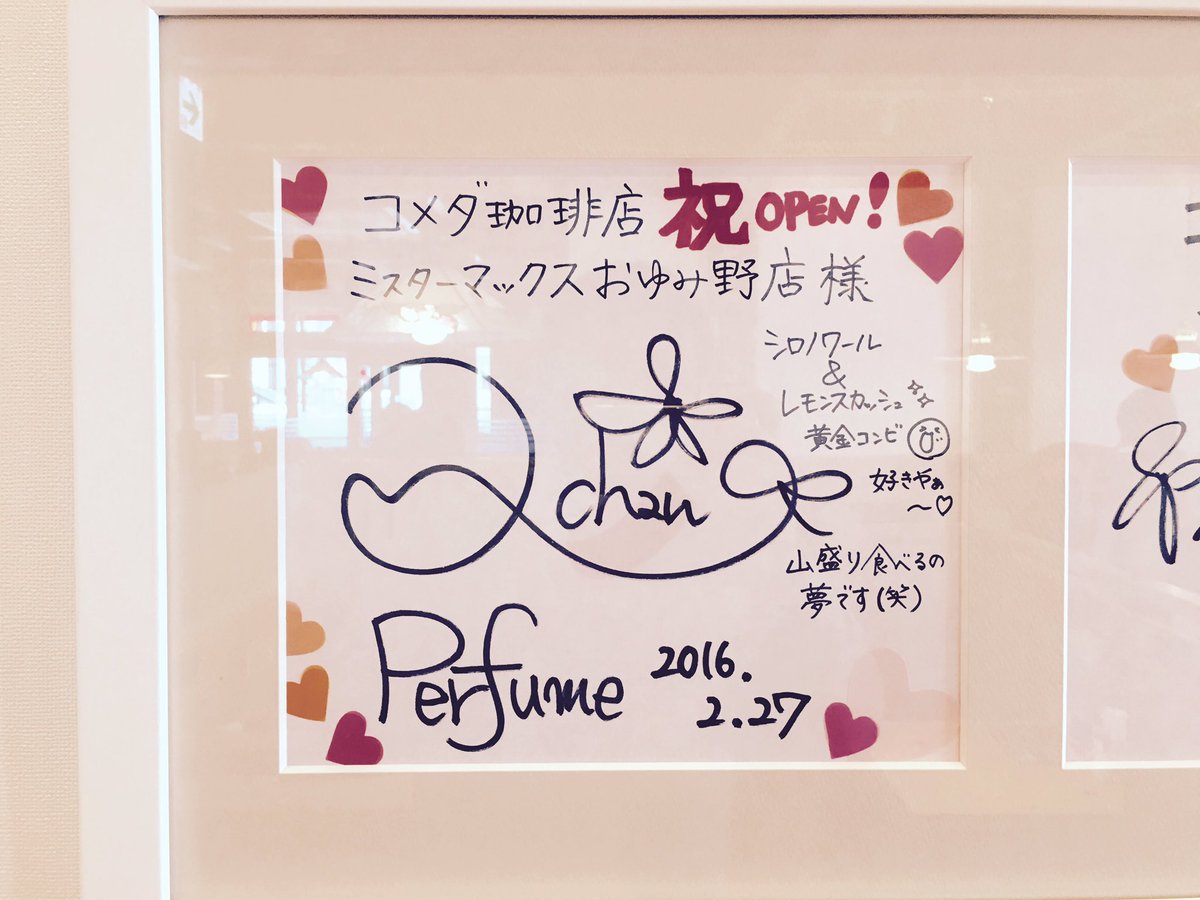 コメダ珈琲店 祝 OPEN!
ミスターマックスおゆみ野店 様
シロノワール
&
レモンスカッシュ
黄金コンビ
好きやぁ
～♡
chan
山盛り食べるの
夢です(笑)
Perfume
2016.
2.27